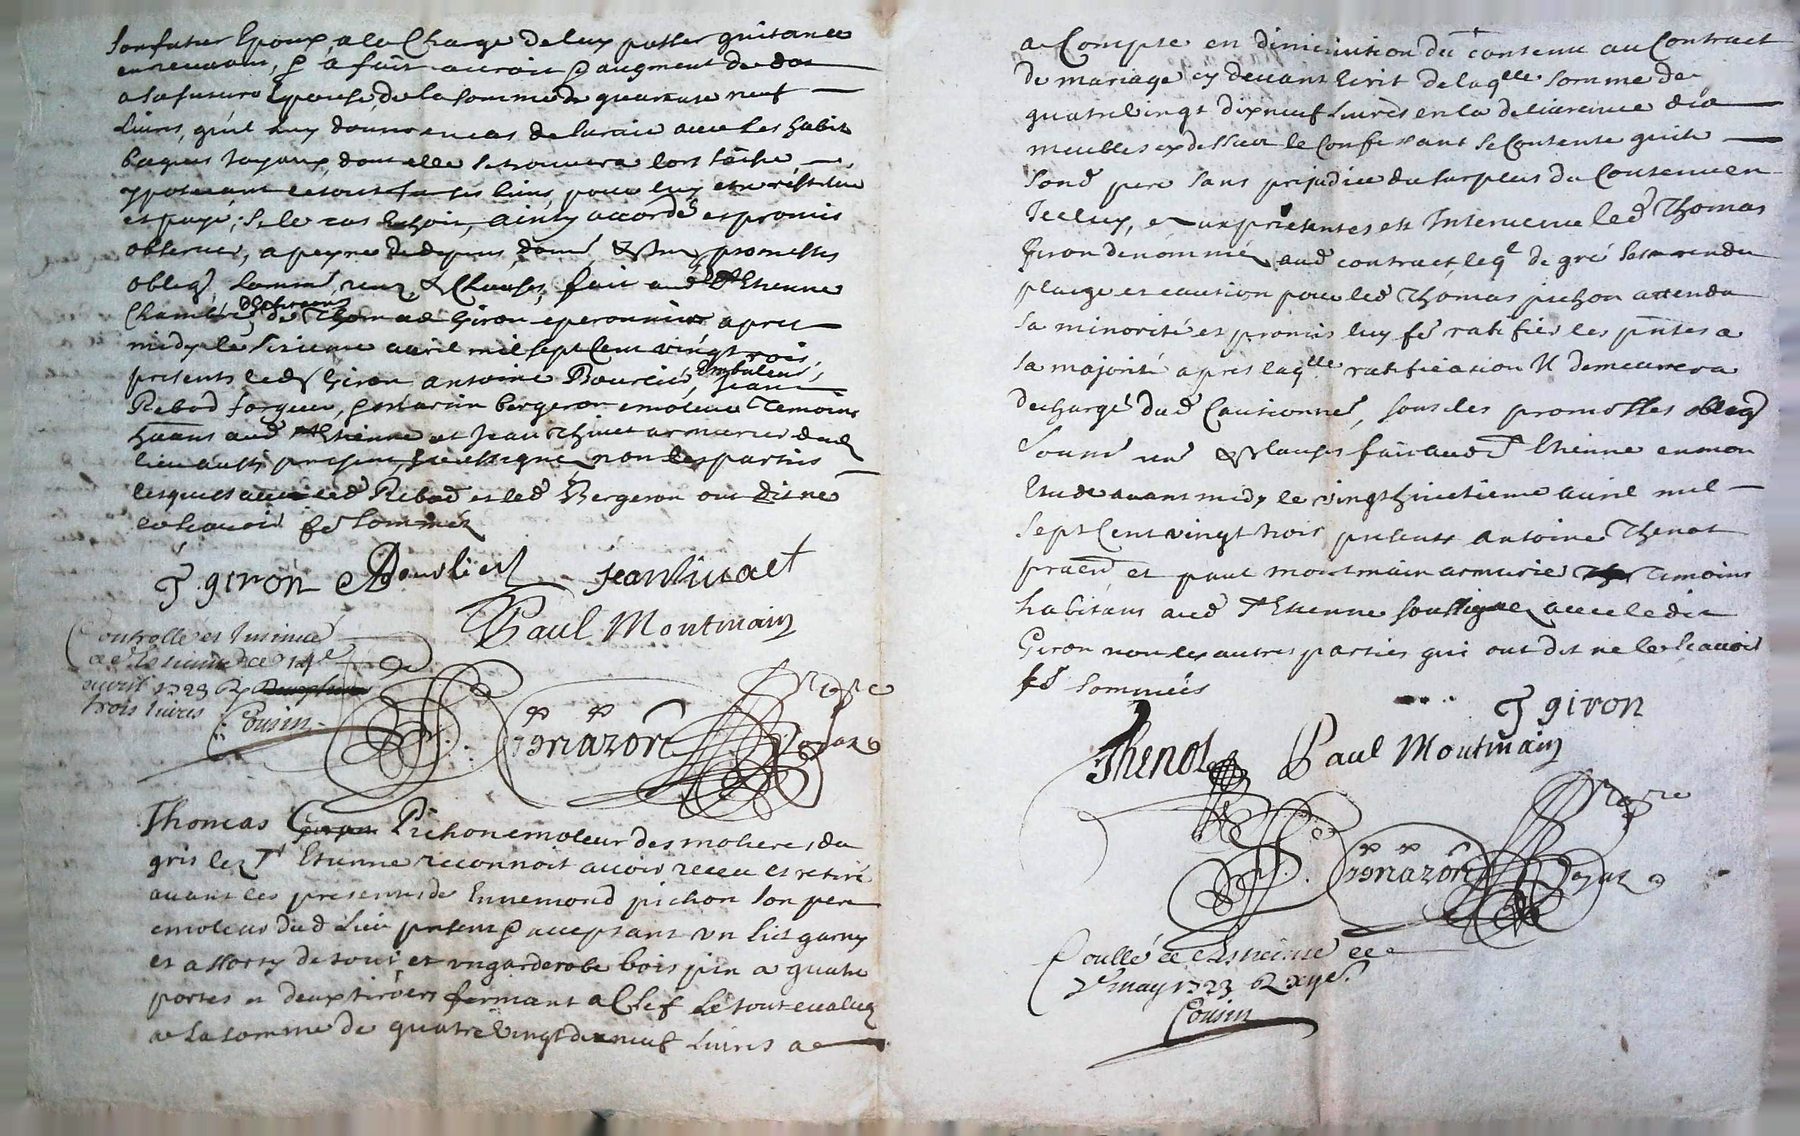 son futur Epoux, a la Charge de luy passer quitance
en recevant, & a fait accroit & augment de dot
a la future Epouse de la somme de quarante neuf
Livres, qu'il luy donne en cas de survie avec les habits
bagues joyaux dont elle se trouvera lors
ypotecant le tout sur ses biens pour luy etre restitue
et payé, si le cas Echoit, ainsy accordé et promis
observer, a peyne de depens, dom & promesses
obligõ, soumõ, renõ, & Clauses, fait aud St Etienne
Chambre de Thomas Giron eperonnier apres
midy le sixieme avril mil sept Cent vingt trois,
presents led Sr Giron antoine Bourlier, Jean
Rebod forgeur, & martin bergeron emoleur Temoins
hãans aud St Etienne et Jean Thivet armurier dud
lieu aussi present, soussignez non les parties
lesquels avec led Rebod et led Bergeron ont dit ne
le scavoir de sommez
J giron Bourlier Jean Tivaet
Paul Montmain
Controllé et Insinué
a St Estienne ce 14e
avril 1723 Rx
trois livres
Cousin
Thomas Pichon emoleur des molieres du
gris lez St Etienne reconnoit avoir receu et retiré
avant les presentes de Ennemond pichon son pere
emoleur dud Lieu present & acceptant un lict garny
et assorty de tout et un garderobe bois pin a quatre
portes et deux tiroirs fermant a Clef Le tout evalué
a La somme de quatre vingt dix neuf Livres a
a Compte en diminution du contenu au Contract
de mariage cy devant Ecrit de laqlle somme de
quatre vingt dix neuf Livres en la delivrance des
meubles cy dessus le Confessant se Contente quite
sond pere sans prejudice du surplus du Contenu en
Jceluy, et aux presentes est Intervenu led Thomas
Giron denommé aud contract, leql de gré s'est rendu
pleige et caution pour led Thomas pichon attendu
sa minorité et promis luy fe ratifier les pntes a
sa majorité apres laqlle ratification Il demeurera
dechargé dud Cautionnet, sous les promesses obligõ
soumõ renõ & clauses fait aud St Etienne en mon
Etude avant midy le vingt huictieme avril mil
Sept Cent vingt trois presents Antoine Thenot
praen et paul montmain armurier Temoins
habitans aud St Etienne soussignez avec le dit
Giron non les autres parties qui ont dit ne le scavoir
de sommées
J giron
Thenot Paul Montmain
Coullé a St Estienne ce
2e may 1723 R
Cousin